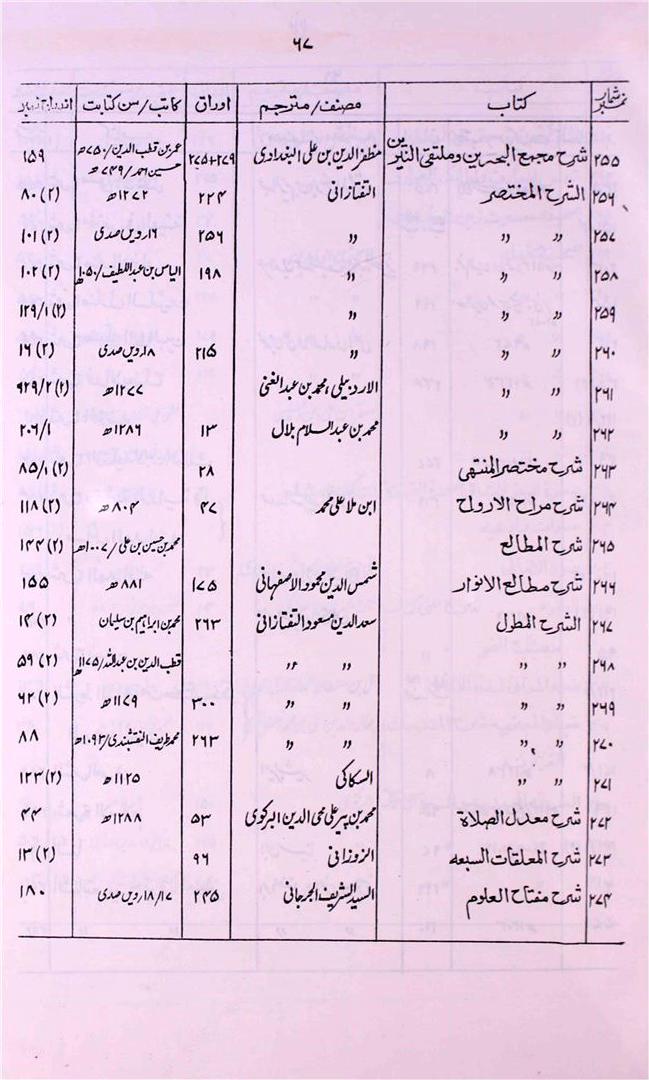 ۶۷
نمبرشمار کتاب مصنف/مترجم اوراق کاتب/سن کتابت اندراج نمبر
۲۵۵ شرح مجمع البحرین وملتقی النیرین مظفر الدین بن علی البغدادی ۲۷۵+۲۷۹ عمر بن قطب الدین/۷۵۰ھ ۱۵۹
حسین احمد/۷۴۹ھ
۲۵۶ الشرح المختصر التفتازانی ۲۲۴ ۱۲۷۲ھ (۲) ۸۰
۲۵۷ " " " ۲۵۶ ۱۲ویں صدی (۲) ۱۰۱
۲۵۸ " " " ۱۹۸ الیاس بن عبداللطیف/۱۰۵۰ھ (۲) ۱۰۲
۲۵۹ " " " (۲) ۱۲۹/۱
۲۶۰ " " " ۲۱۵ ۱۸ویں صدی (۲) ۱۶
۲۶۱ " " الاردبیلی، محمد بن عبدالغنی ۱۲۷۷ھ (۲) ۹۲۹/۲
۲۶۲ " " محمد بن عبدالسلام بلال ۱۳ ۱۲۸۶ھ ۲۰۶/۱
۲۶۳ شرح مختصر المنتہی ۲۸ (۲) ۸۵/۱
۲۶۴ شرح مراح الارواح ابن ملا علی محمد ۴۷ ۸۰۴ھ (۲) ۱۱۸
۲۶۵ شرح المطالع محمد بن حسین بن علی/۱۰۰۷ھ (۲) ۱۴۴
۲۶۶ شرح مطالع الانوار شمس الدین محمود الاصفہانی ۱۷۵ ۸۸۱ھ ۱۵۵
۲۶۷ الشرح المطول سعدالدین مسعود التفتازانی ۲۶۳ محمد بن ابراہیم بن سلیمان (۲) ۱۴
۲۶۸ " " " " قطب الدین بن عبداللہ/۱۱۷۵ھ (۲) ۵۹
۲۶۹ " " " " ۳۰۰ ۱۱۷۹ھ (۲) ۶۲
۲۷۰ " " " " ۲۶۳ محمد ظریف النقشبندی/۱۰۹۳ھ ۸۸
۲۷۱ " " السکاکی ۱۱۲۵ھ (۲) ۱۲۳
۲۷۲ شرح معدل الصلاة محمد بن پیر علی محی الدین البرکوی ۵۳ ۱۲۸۸ھ ۴۴
۲۷۳ شرح المعلقات السبعہ الزوزانی ۹۶ (۲) ۱۳
۲۷۴ شرح مفتاح العلوم السید الشریف الجرجانی ۲۴۵ ۱۸/۱۷ویں صدی ۱۸۰